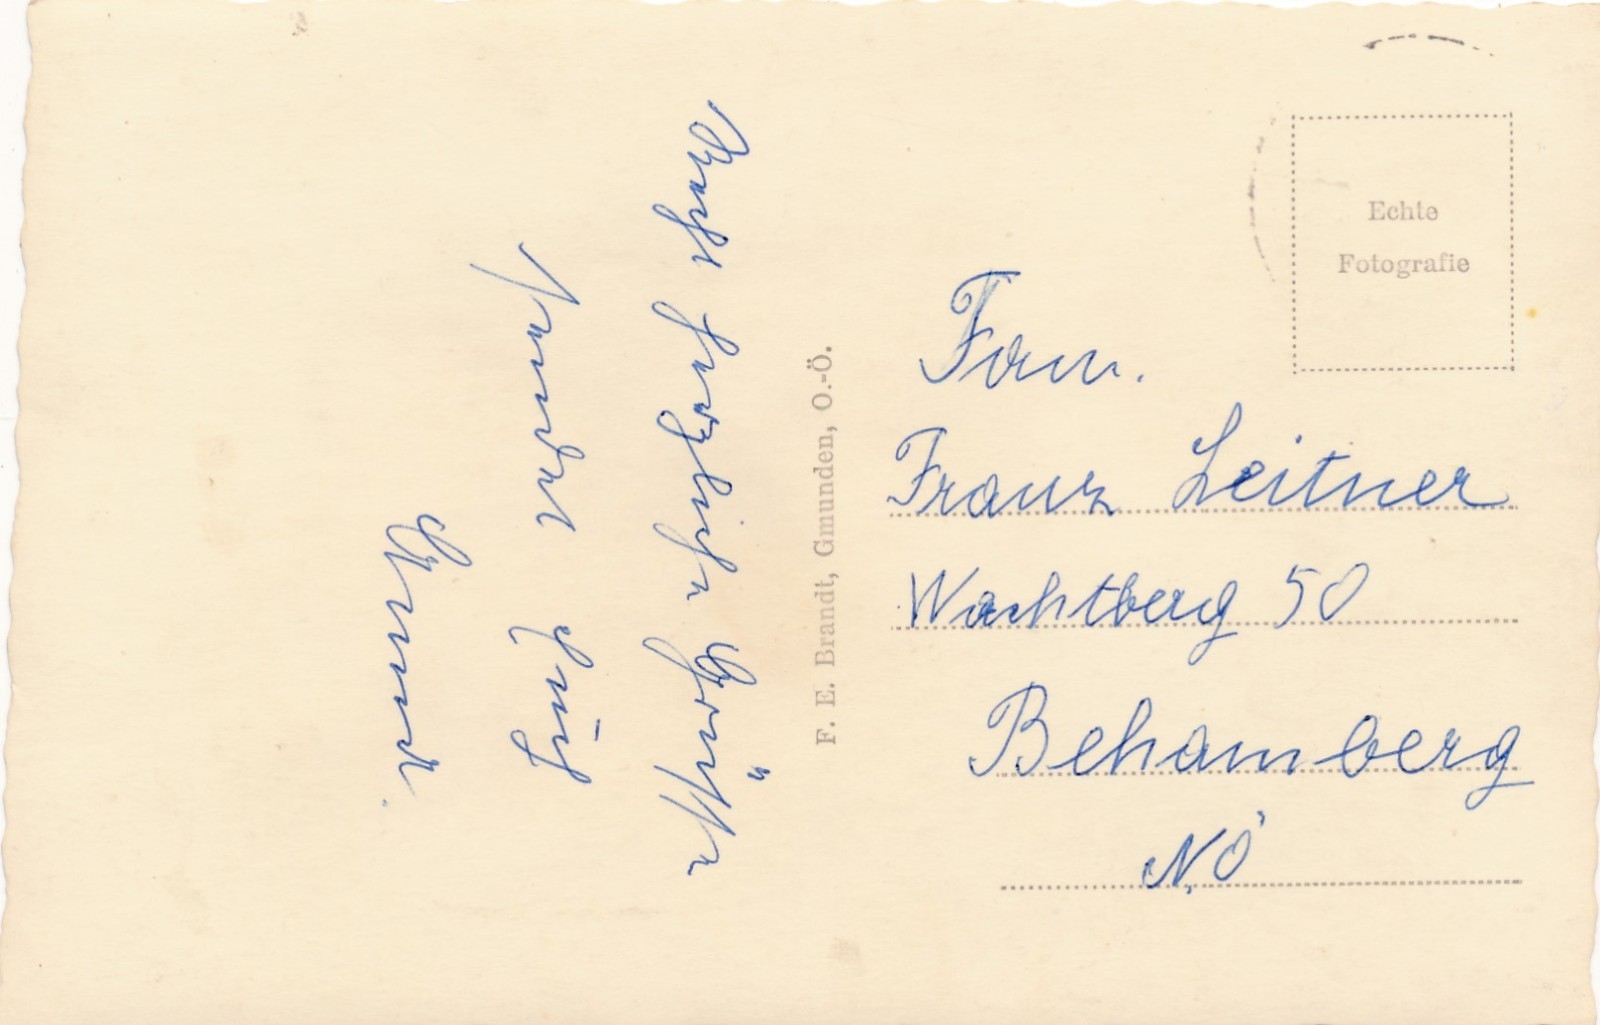 Recht herzliche Grüsse
sendet Euch
F. E. Brandt, Gmunden, O.-Ö.
Echte
Fotografie
Fam.
Franz Leitner
Wachtberg 50
Behamberg
NÖ